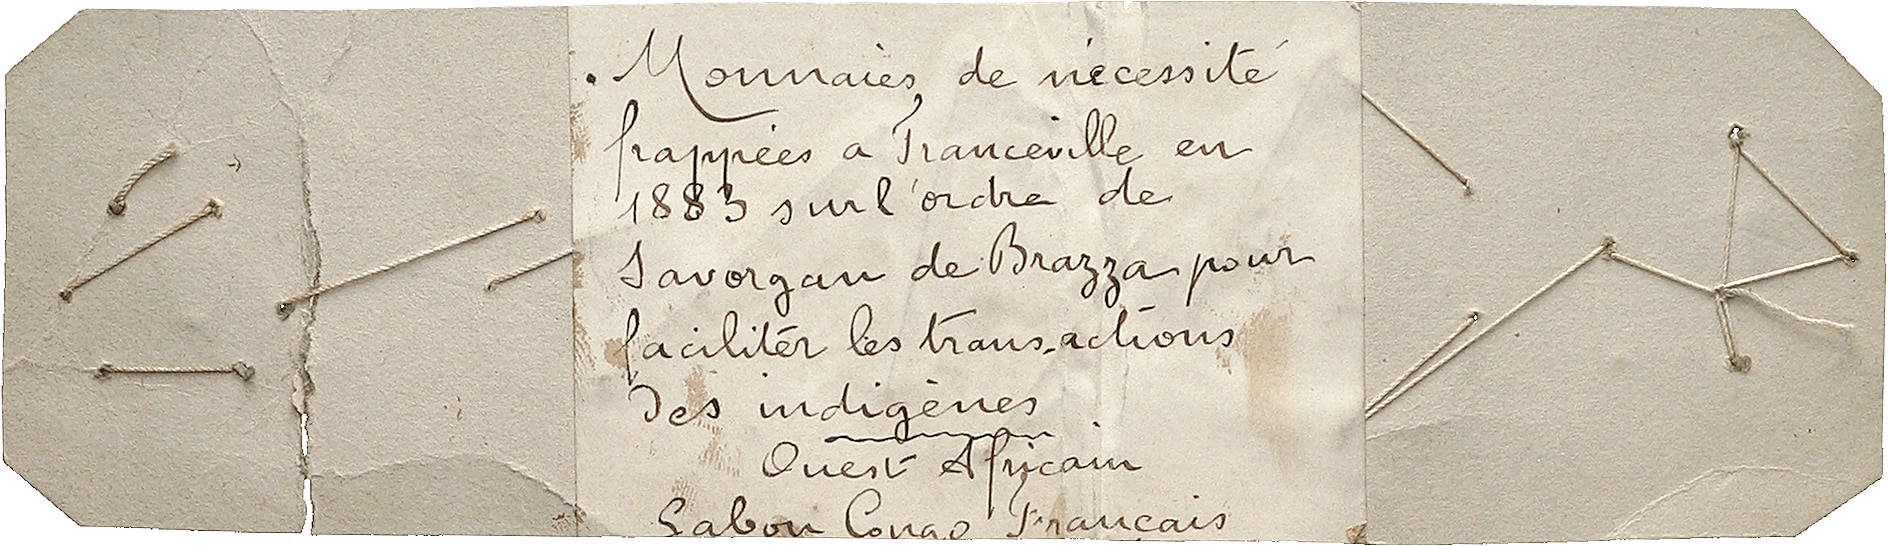 . Monnaies, de nécessité
frappées a Franceville en
1883 sur l'ordre de
Savorgan de Brazza pour
faciliter les transactions
des indigènes
Ouest Africain
Gabon Congo Français